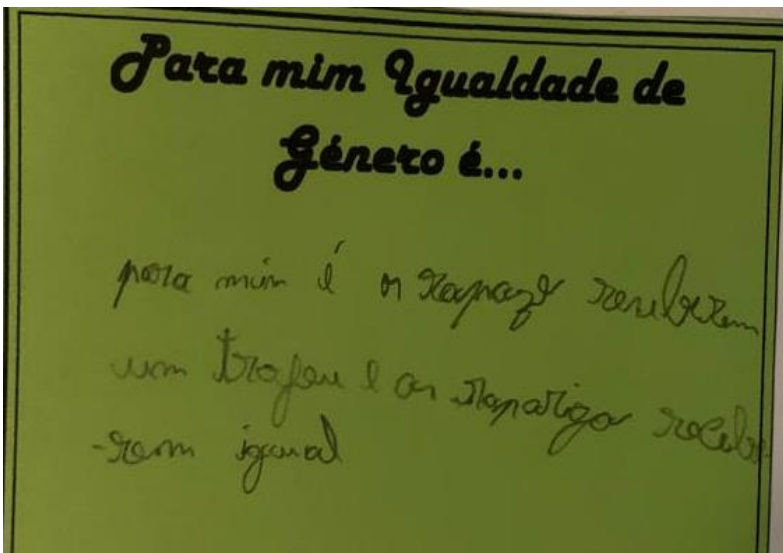 Para mim Igualdade de
Género é...
para mim é os rapazes receberem
um trofeu e as raparigas recebe-
-rem igual